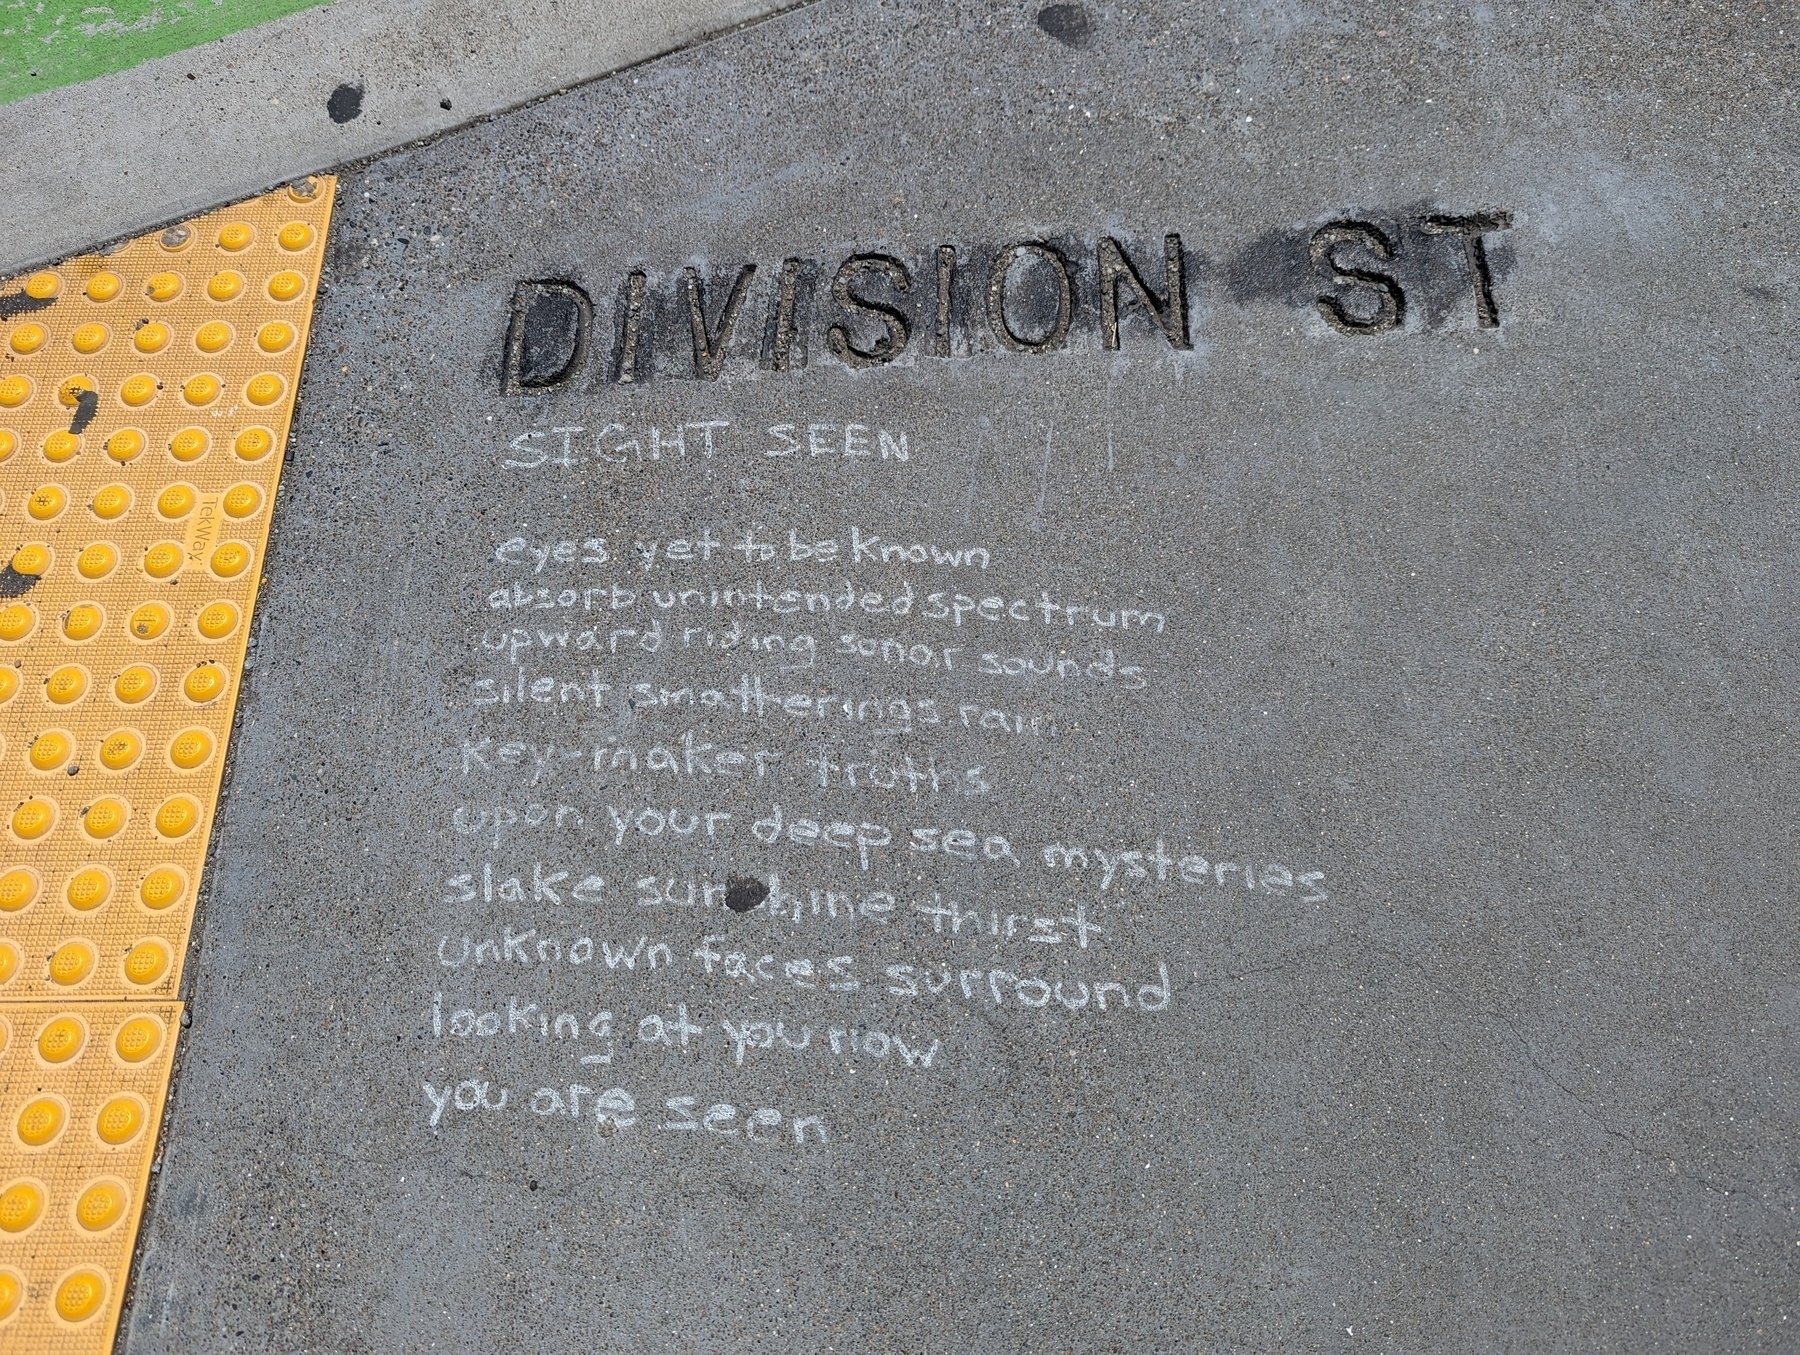 DIVISION ST
SIGHT SEEN
eyes yet to be known
absorb unintended spectrum
upward riding sonar sounds
silent smatherings rain
key-maker truths
upon your deep sea mysteries
slake sunshine thirst
unknown faces surround
looking at you now
you are seen
TekWay